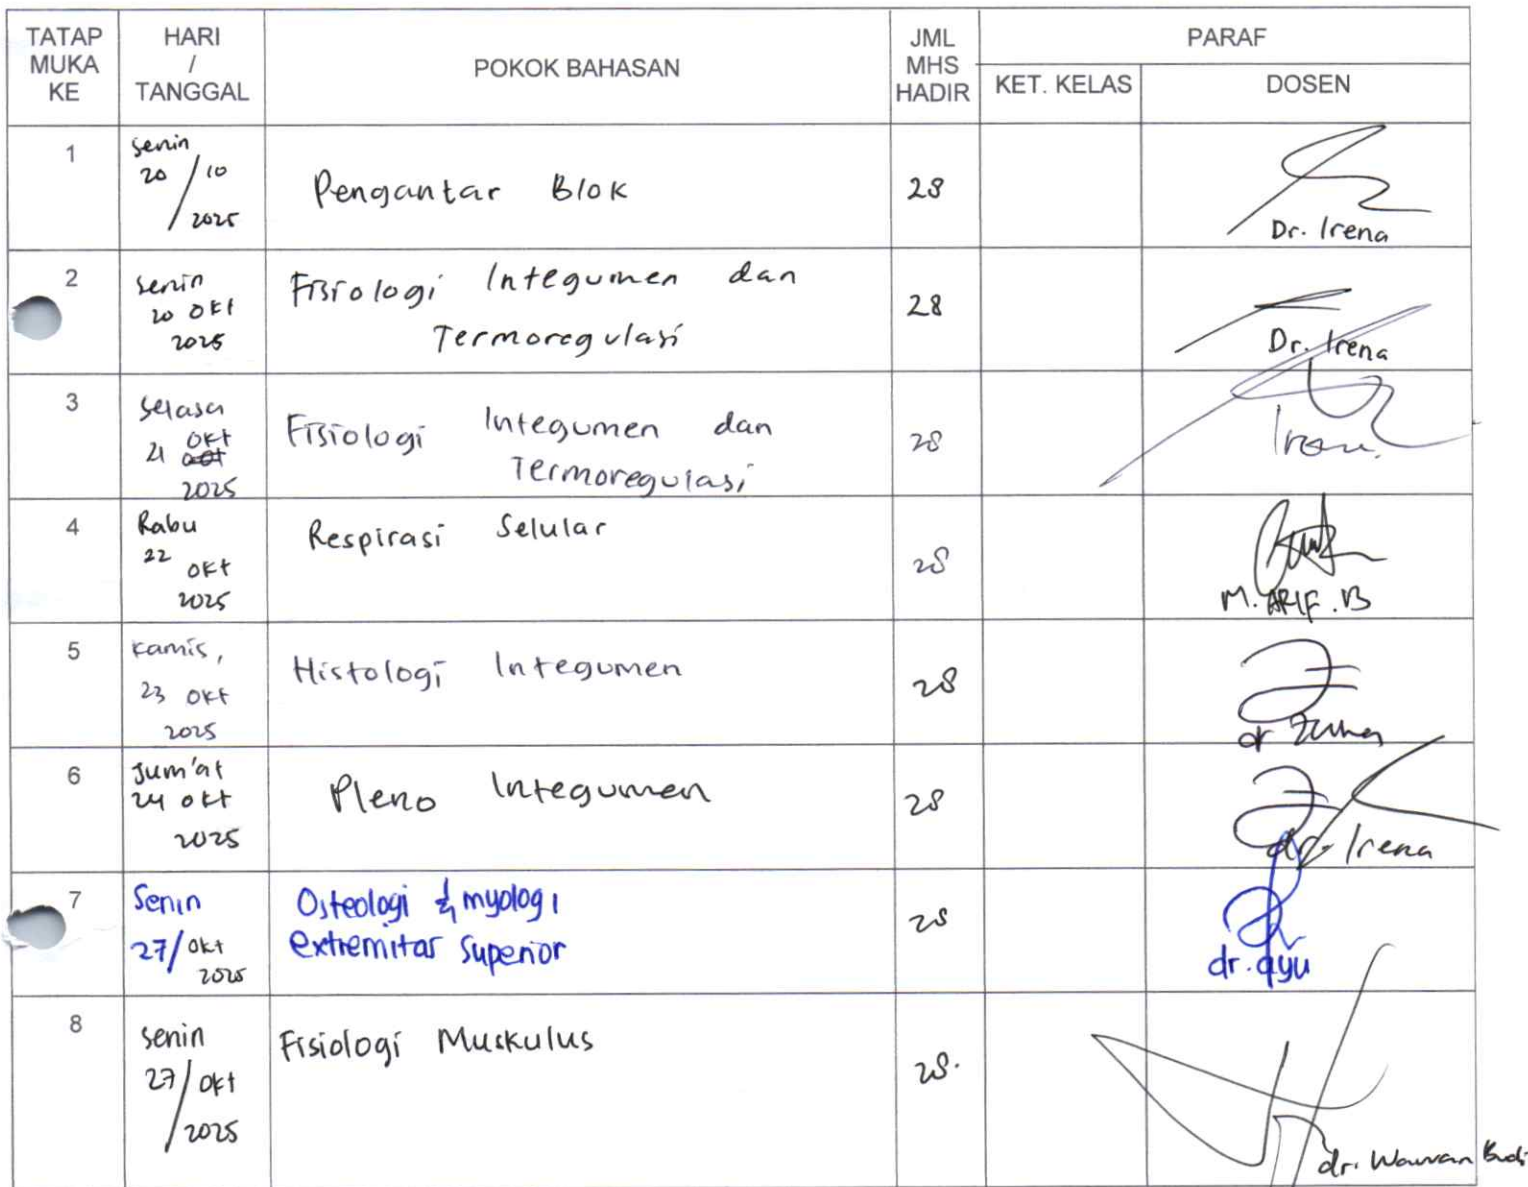 TATAP MUKA KE
HARI / TANGGAL
POKOK BAHASAN
JML MHS HADIR
PARAF
KET. KELAS
DOSEN
1
Senin
20 / 10
2025
Pengantar Blok
28
Dr. Irena
2
Senin
20 Okt
2025
Fisiologi Integumen dan
Termoregulasi
28
Dr. Irena
3
Selasa
21 Okt
2025
Fisiologi Integumen dan
Termoregulasi
28
Irena
4
Rabu
22 Okt
2025
Respirasi Selular
28
M. ARIF. B
5
Kamis,
23 Okt
2025
Histologi Integumen
28
dr
6
Jum'at
24 Okt
2025
Pleno Integumen
28
dr. Irena
7
Senin
27/Okt
2025
Osteologi & myologi
extremitas superior
28
dr. ayu
8
Senin
27/Okt
2025
Fisiologi Muskulus
28.
dr. Wawan Budi